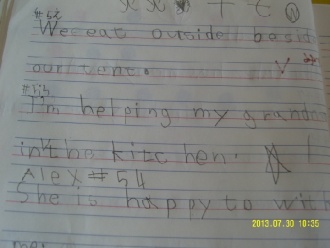 #62
We eat outside besid
our tent.
I'm helping my grandm
in the kitchen.
Alex #54
She is happy to with
2013.07.30 10:35